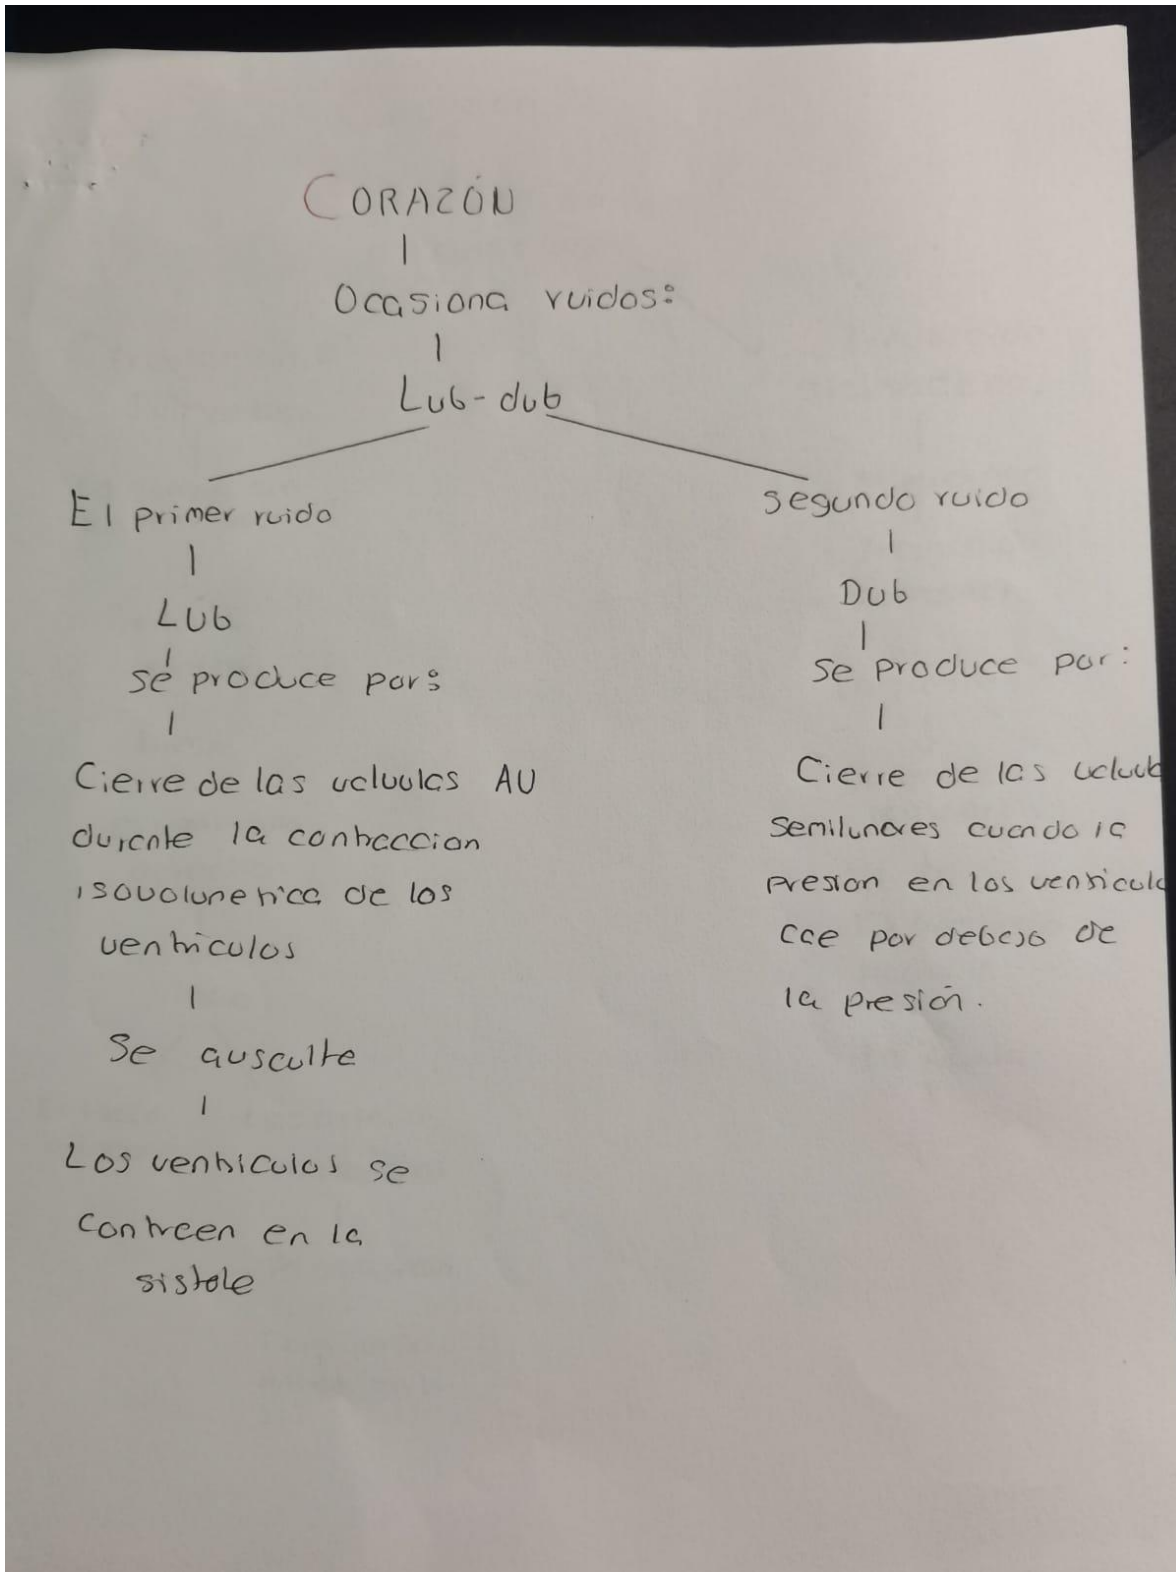 CORAZÓN
Ocasiona ruidos:
Lub-dub
El primer ruido
Lub
se produce por:
Cierre de las valvulas AV
durante la contraccion
isovolumetrica de los
ventriculos
Se ausculte
Los ventriculos se
contraen en la
sistole
segundo ruido
Dub
Se produce por:
Cierre de las valvul
Semilunares cuando la
presion en los ventriculo
cae por debajo de
la presión.